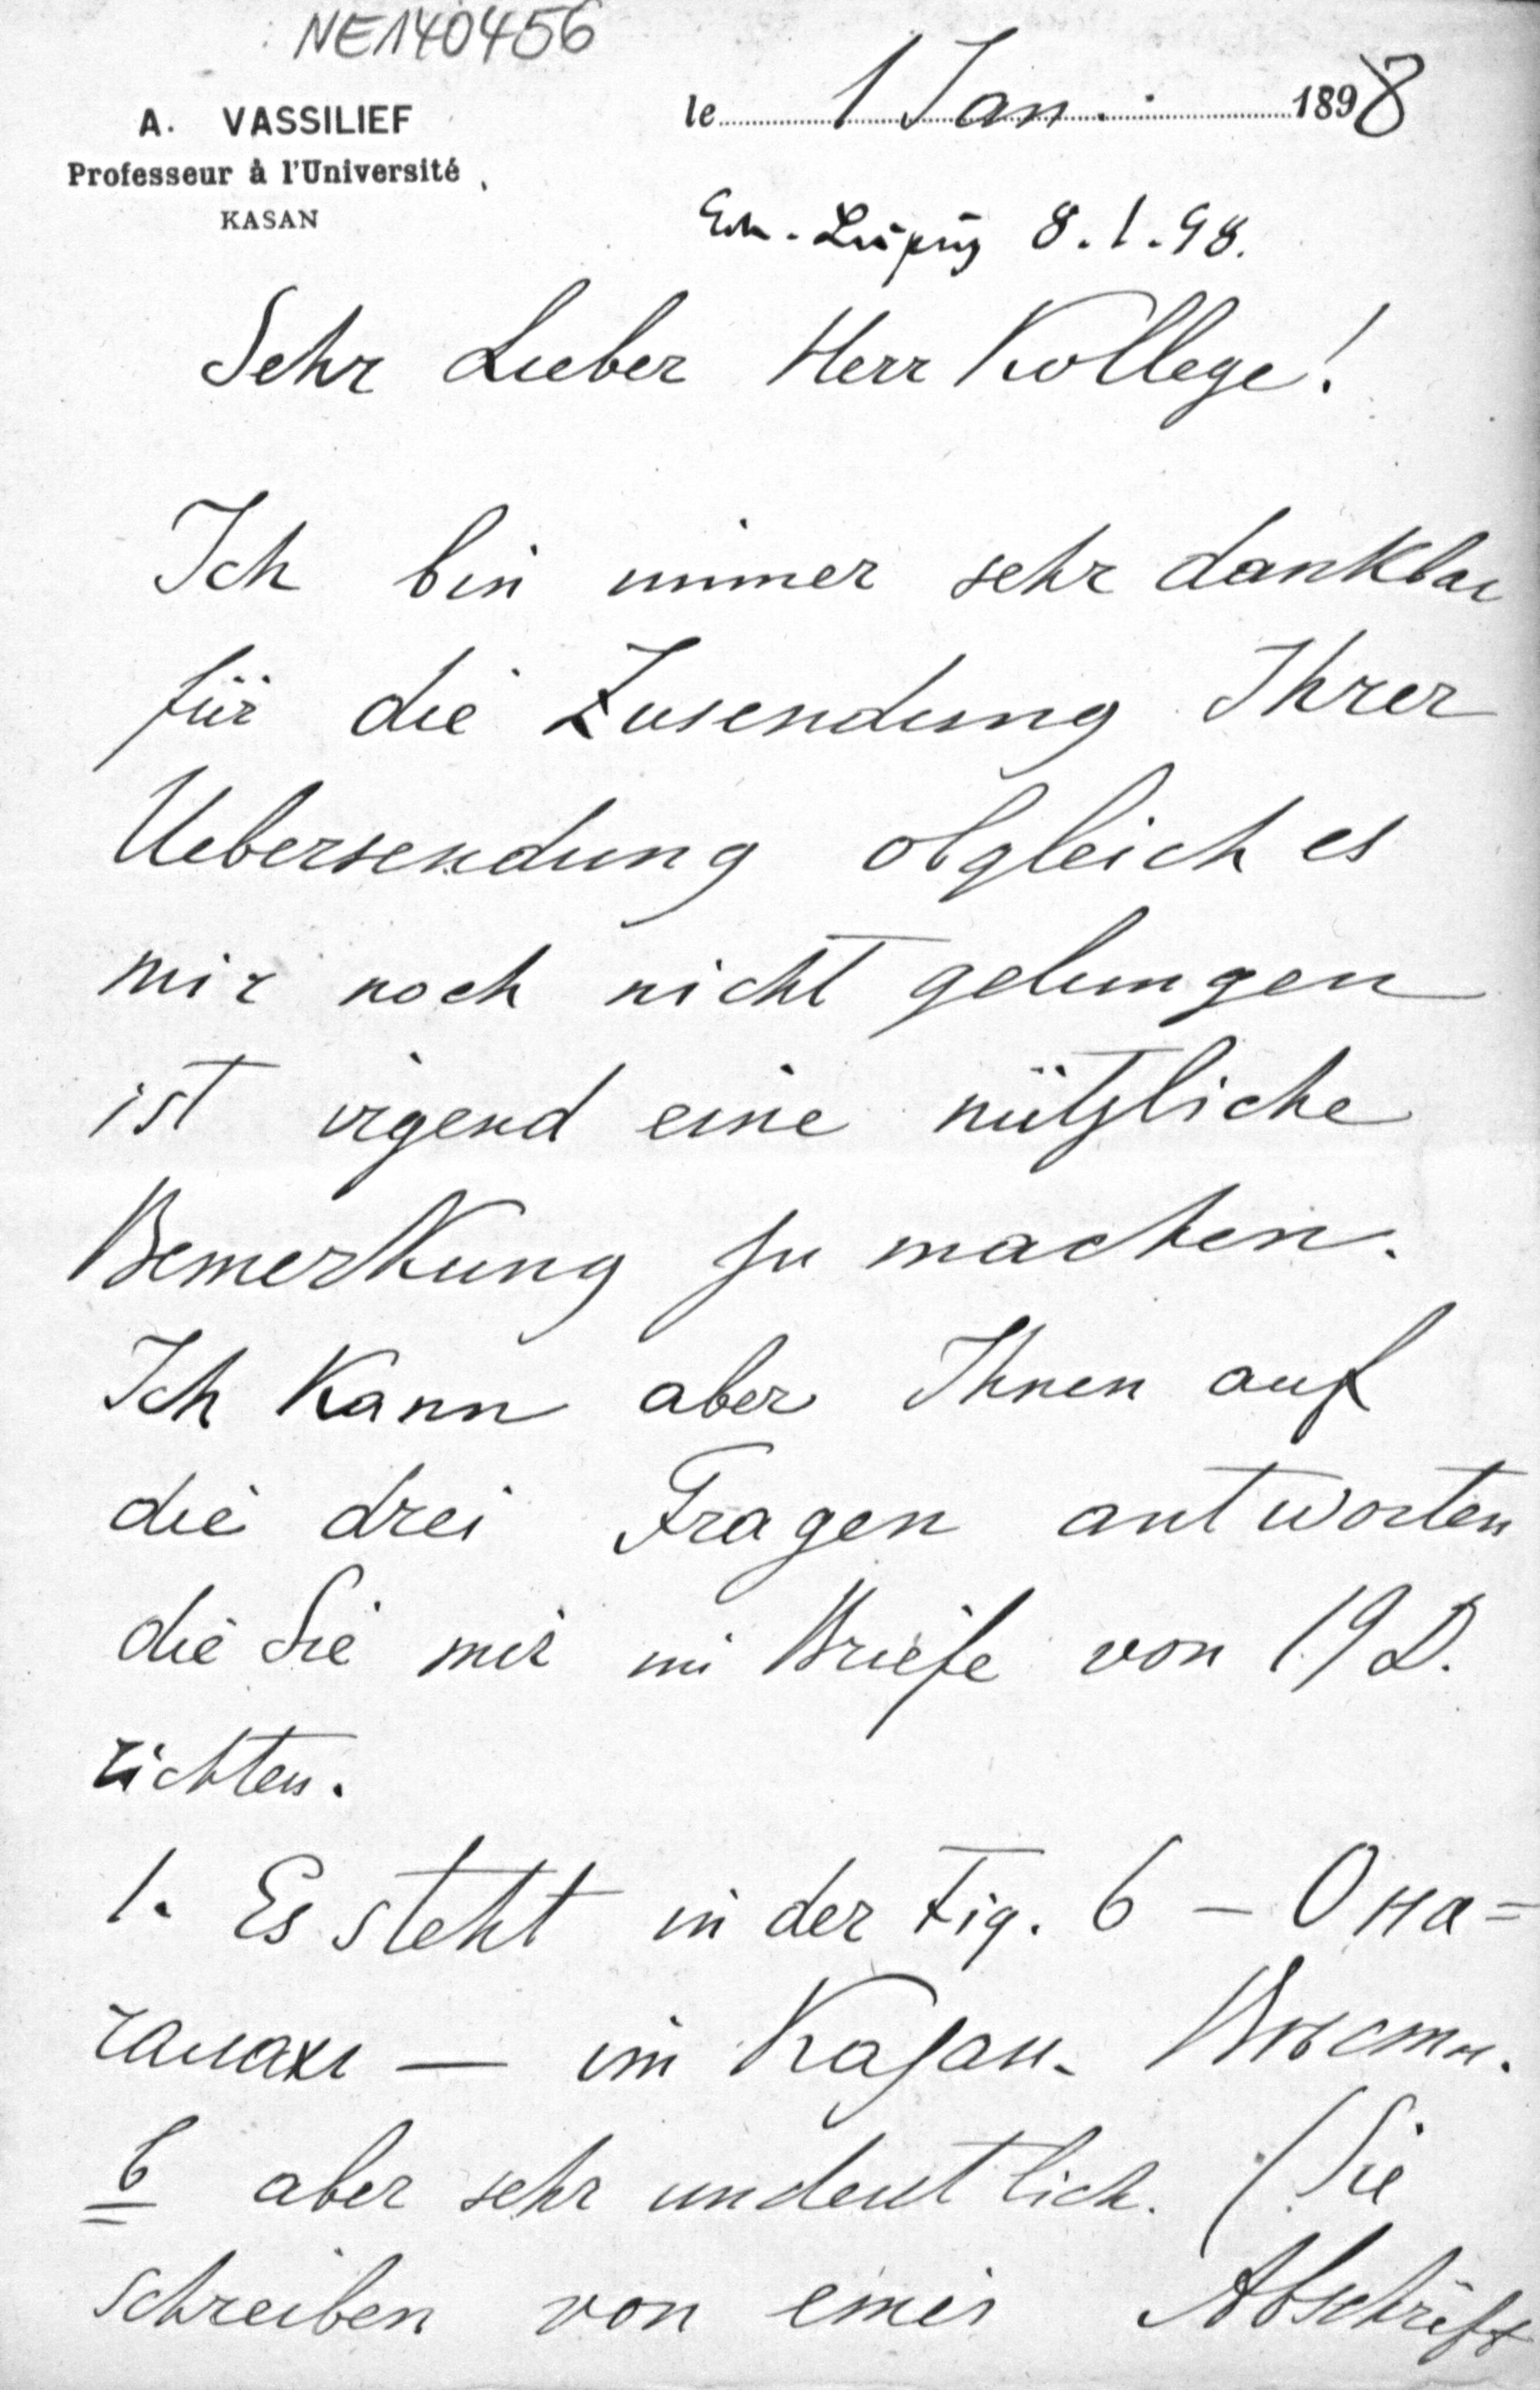 NE140456
A. VASSILIEF
Professeur à l'Université
KASAN
le 1 Jan. 1898
Erh. Leipzig 8.1.98.
Sehr Lieber Herr Kollege!
Ich bin immer sehr dankbar
für die Zusendung Ihrer
Uebersendung obgleich es
mir noch nicht gelungen
ist irgend eine nützliche
Bemerkung zu machen.
Ich kann aber Ihnen auf
die drei Fragen antworten
die Sie mir im Briefe von 19 D.
richten.
1. Es steht in der Fig. 6 – О на=
чалахъ — im Казан. Вѣстн.
6 aber sehr undeutlich. (Sie
schreiben von einer Abschrift